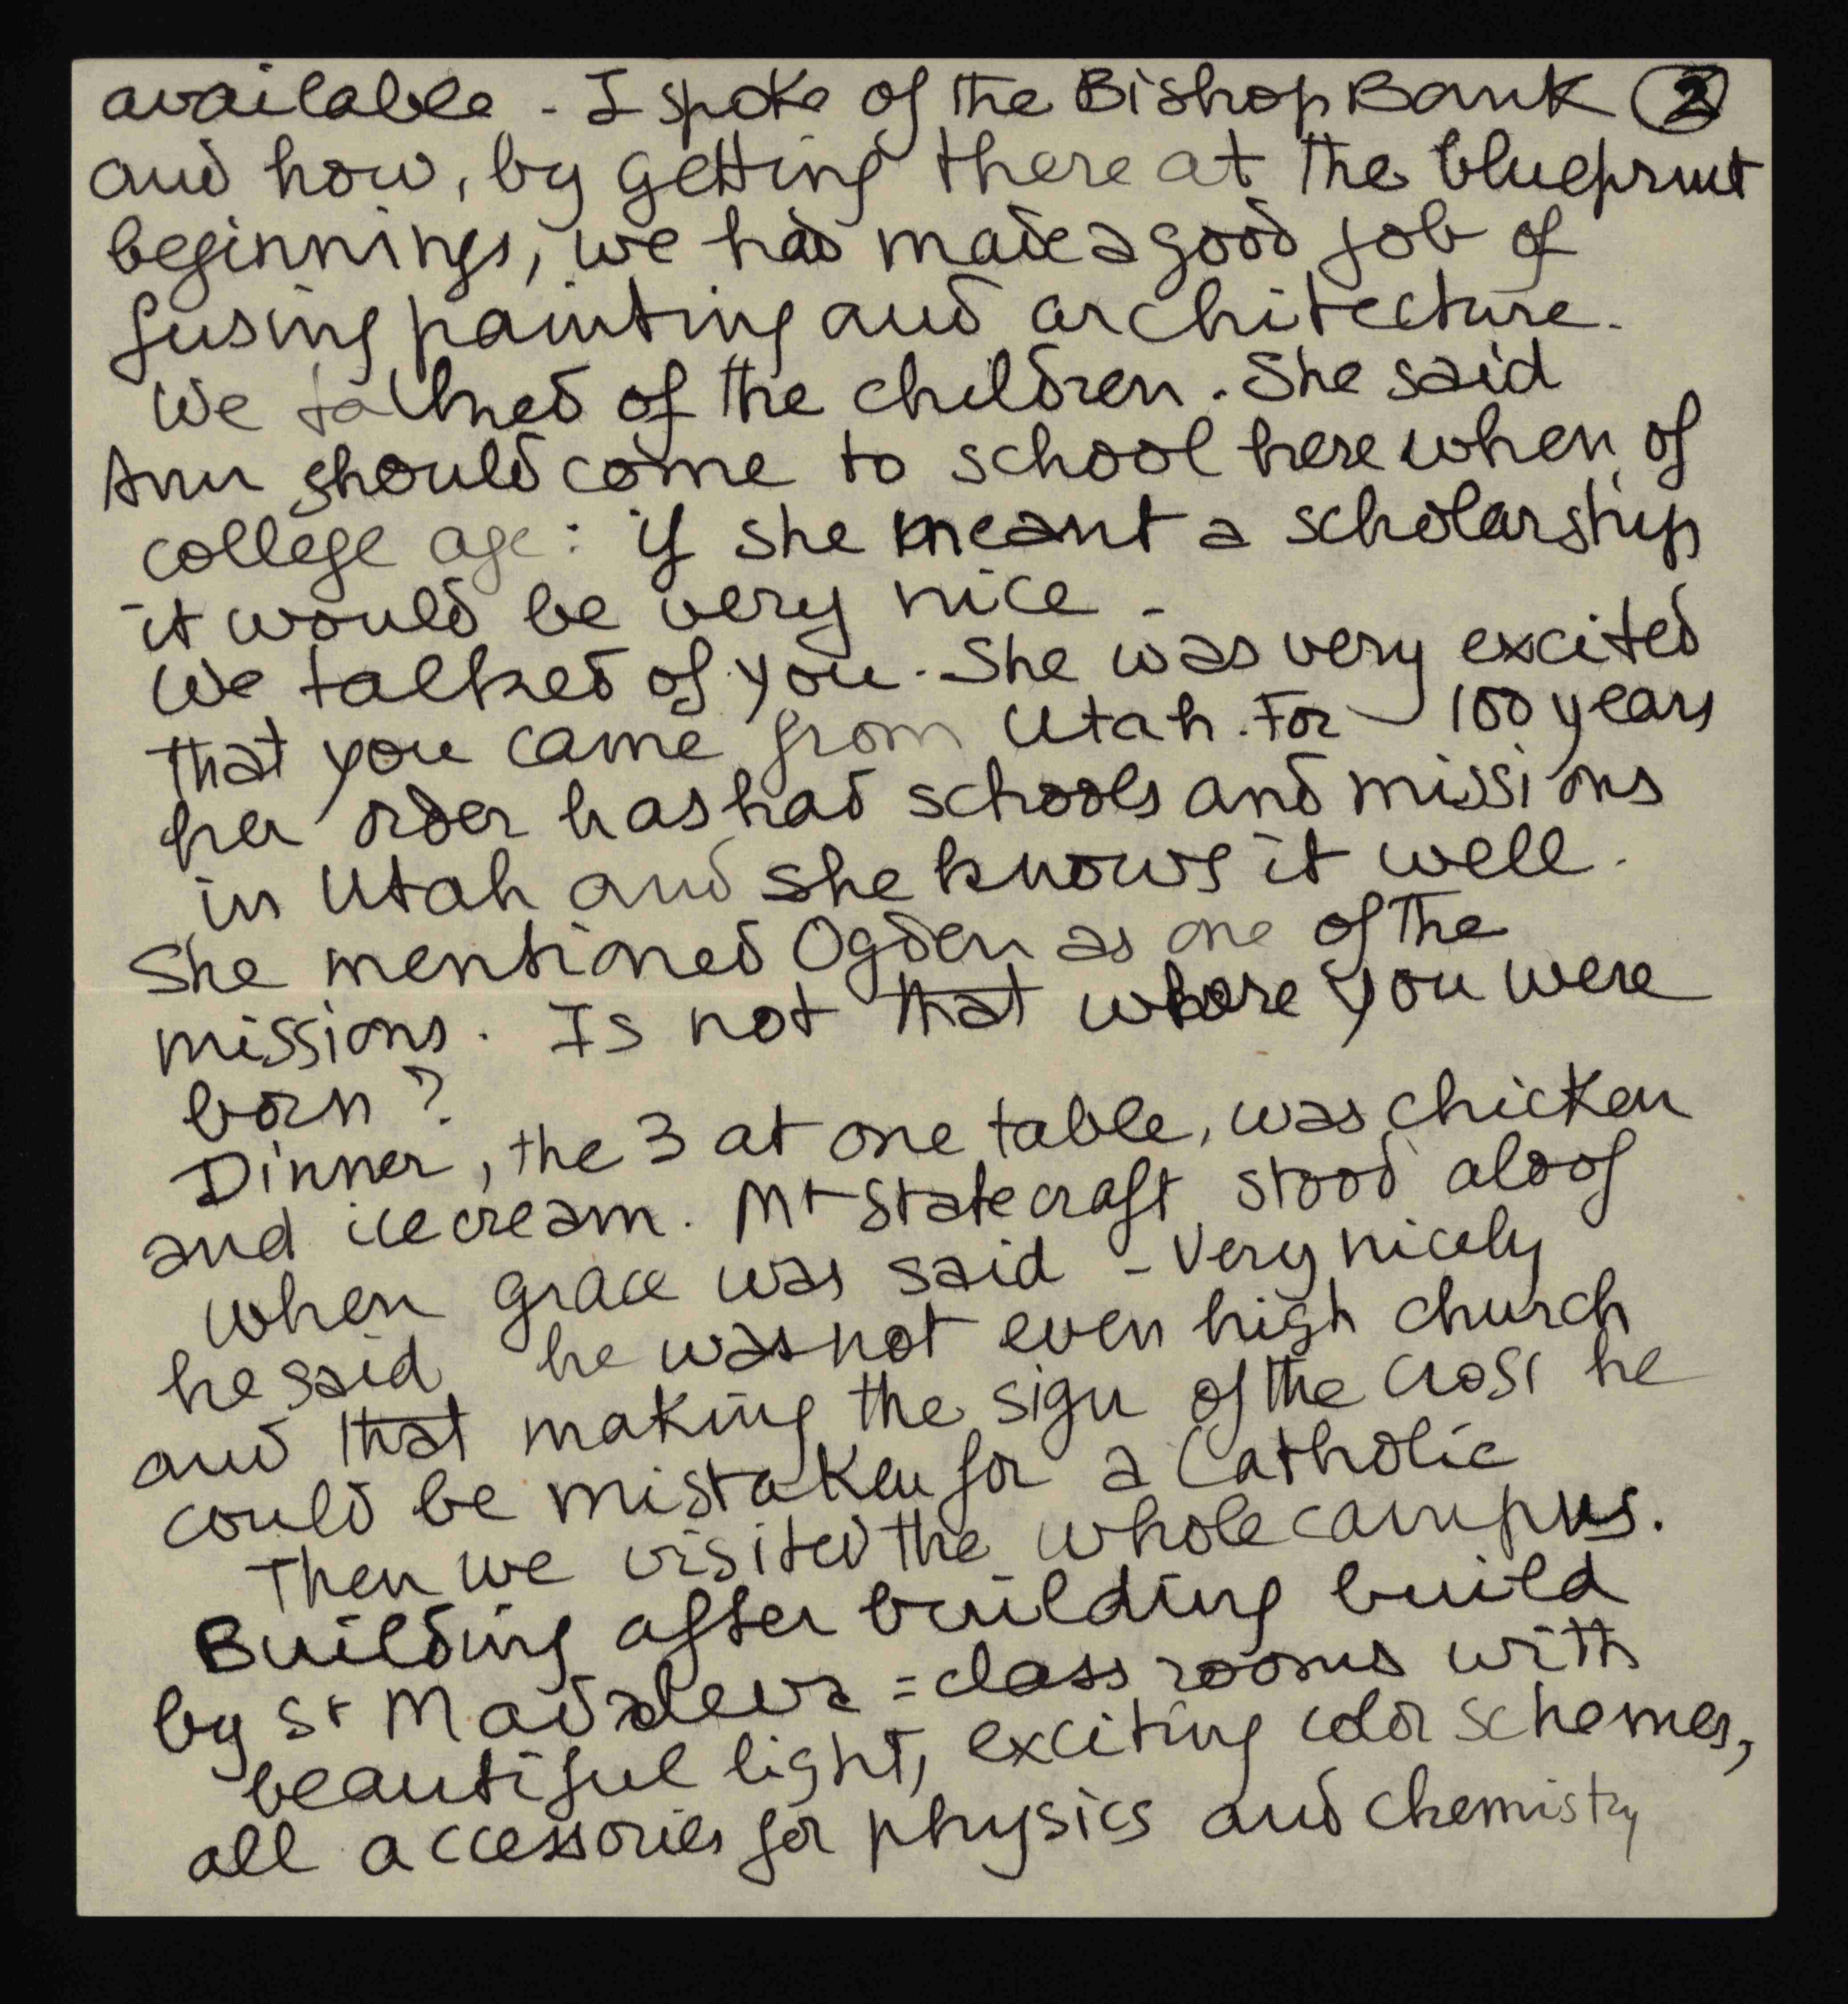 available - I spoke of the Bishop Bank 2
and how, by getting there at the blueprint
beginnings, we had made a good job of
fusing painting and architecture.
We talked of the children. She said
Ann should come to school here when of
college age: if she meant a scholarship
it would be very nice -
We talked of you. She was very excited
that you came from Utah. For 100 years
her order has had schools and missions
in Utah and she knows it well.
She mentioned Ogden as one of the
missions. Is not that where you were
born?
Dinner, the 3 at one table, was chicken
and ice cream. Mr Statecraft stood aloof
when grace was said - Very nicely
he said he was not even high church
and that making the sign of the cross he
could be mistaken for a Catholic
Then we visited the whole campus.
Building after building build
by Sr Madaleva = class rooms with
beautiful light, exciting color schemes,
all accessories for physics and chemistry